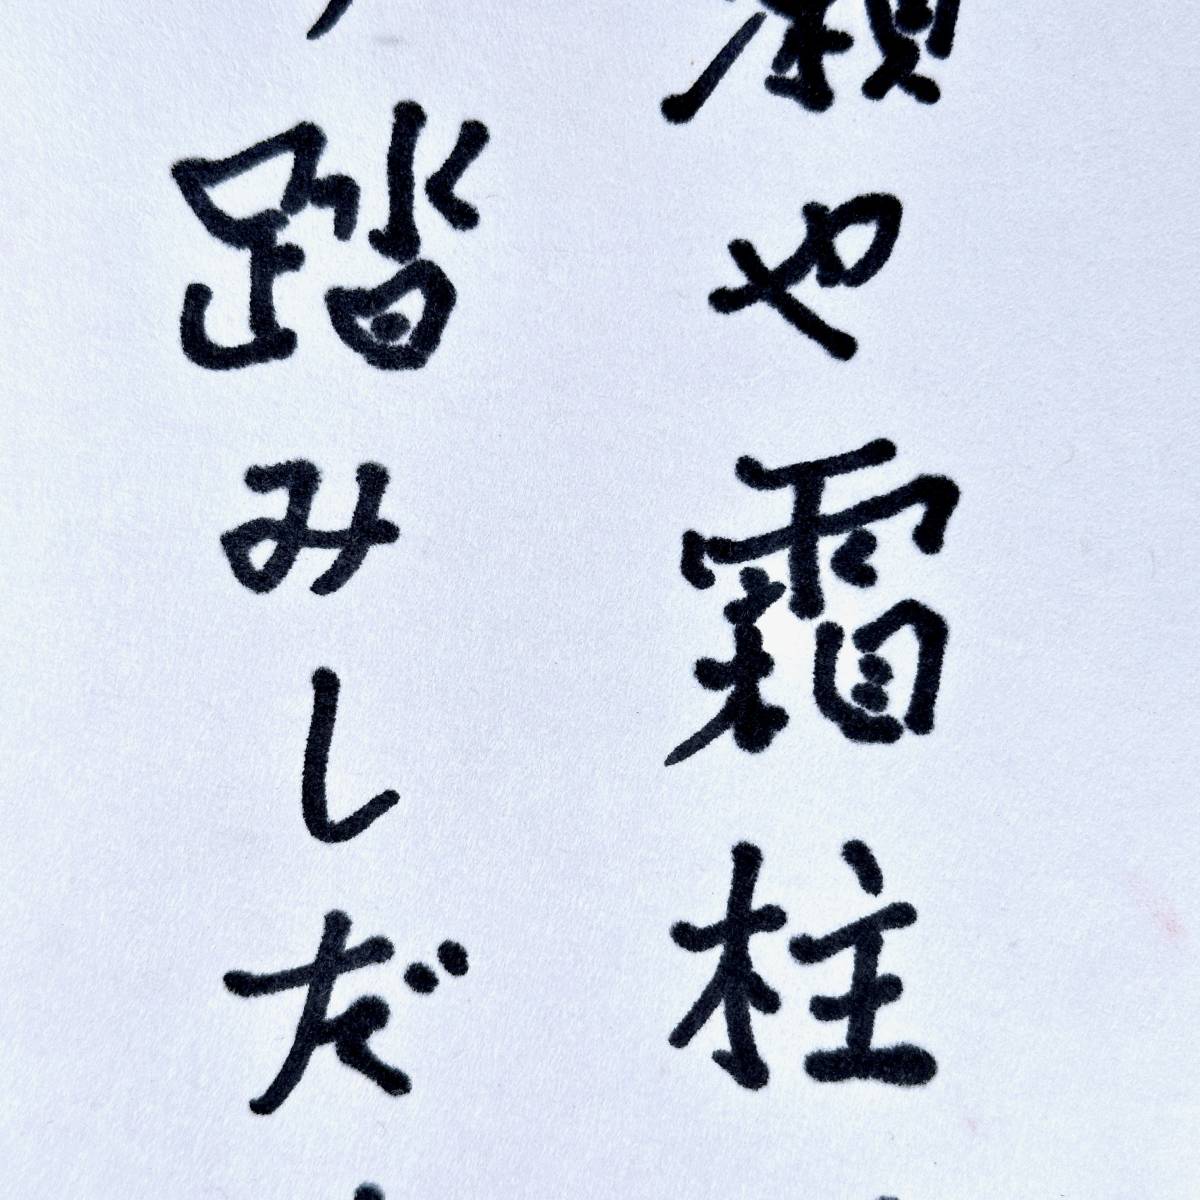 瀬や霜柱
踏みしだ